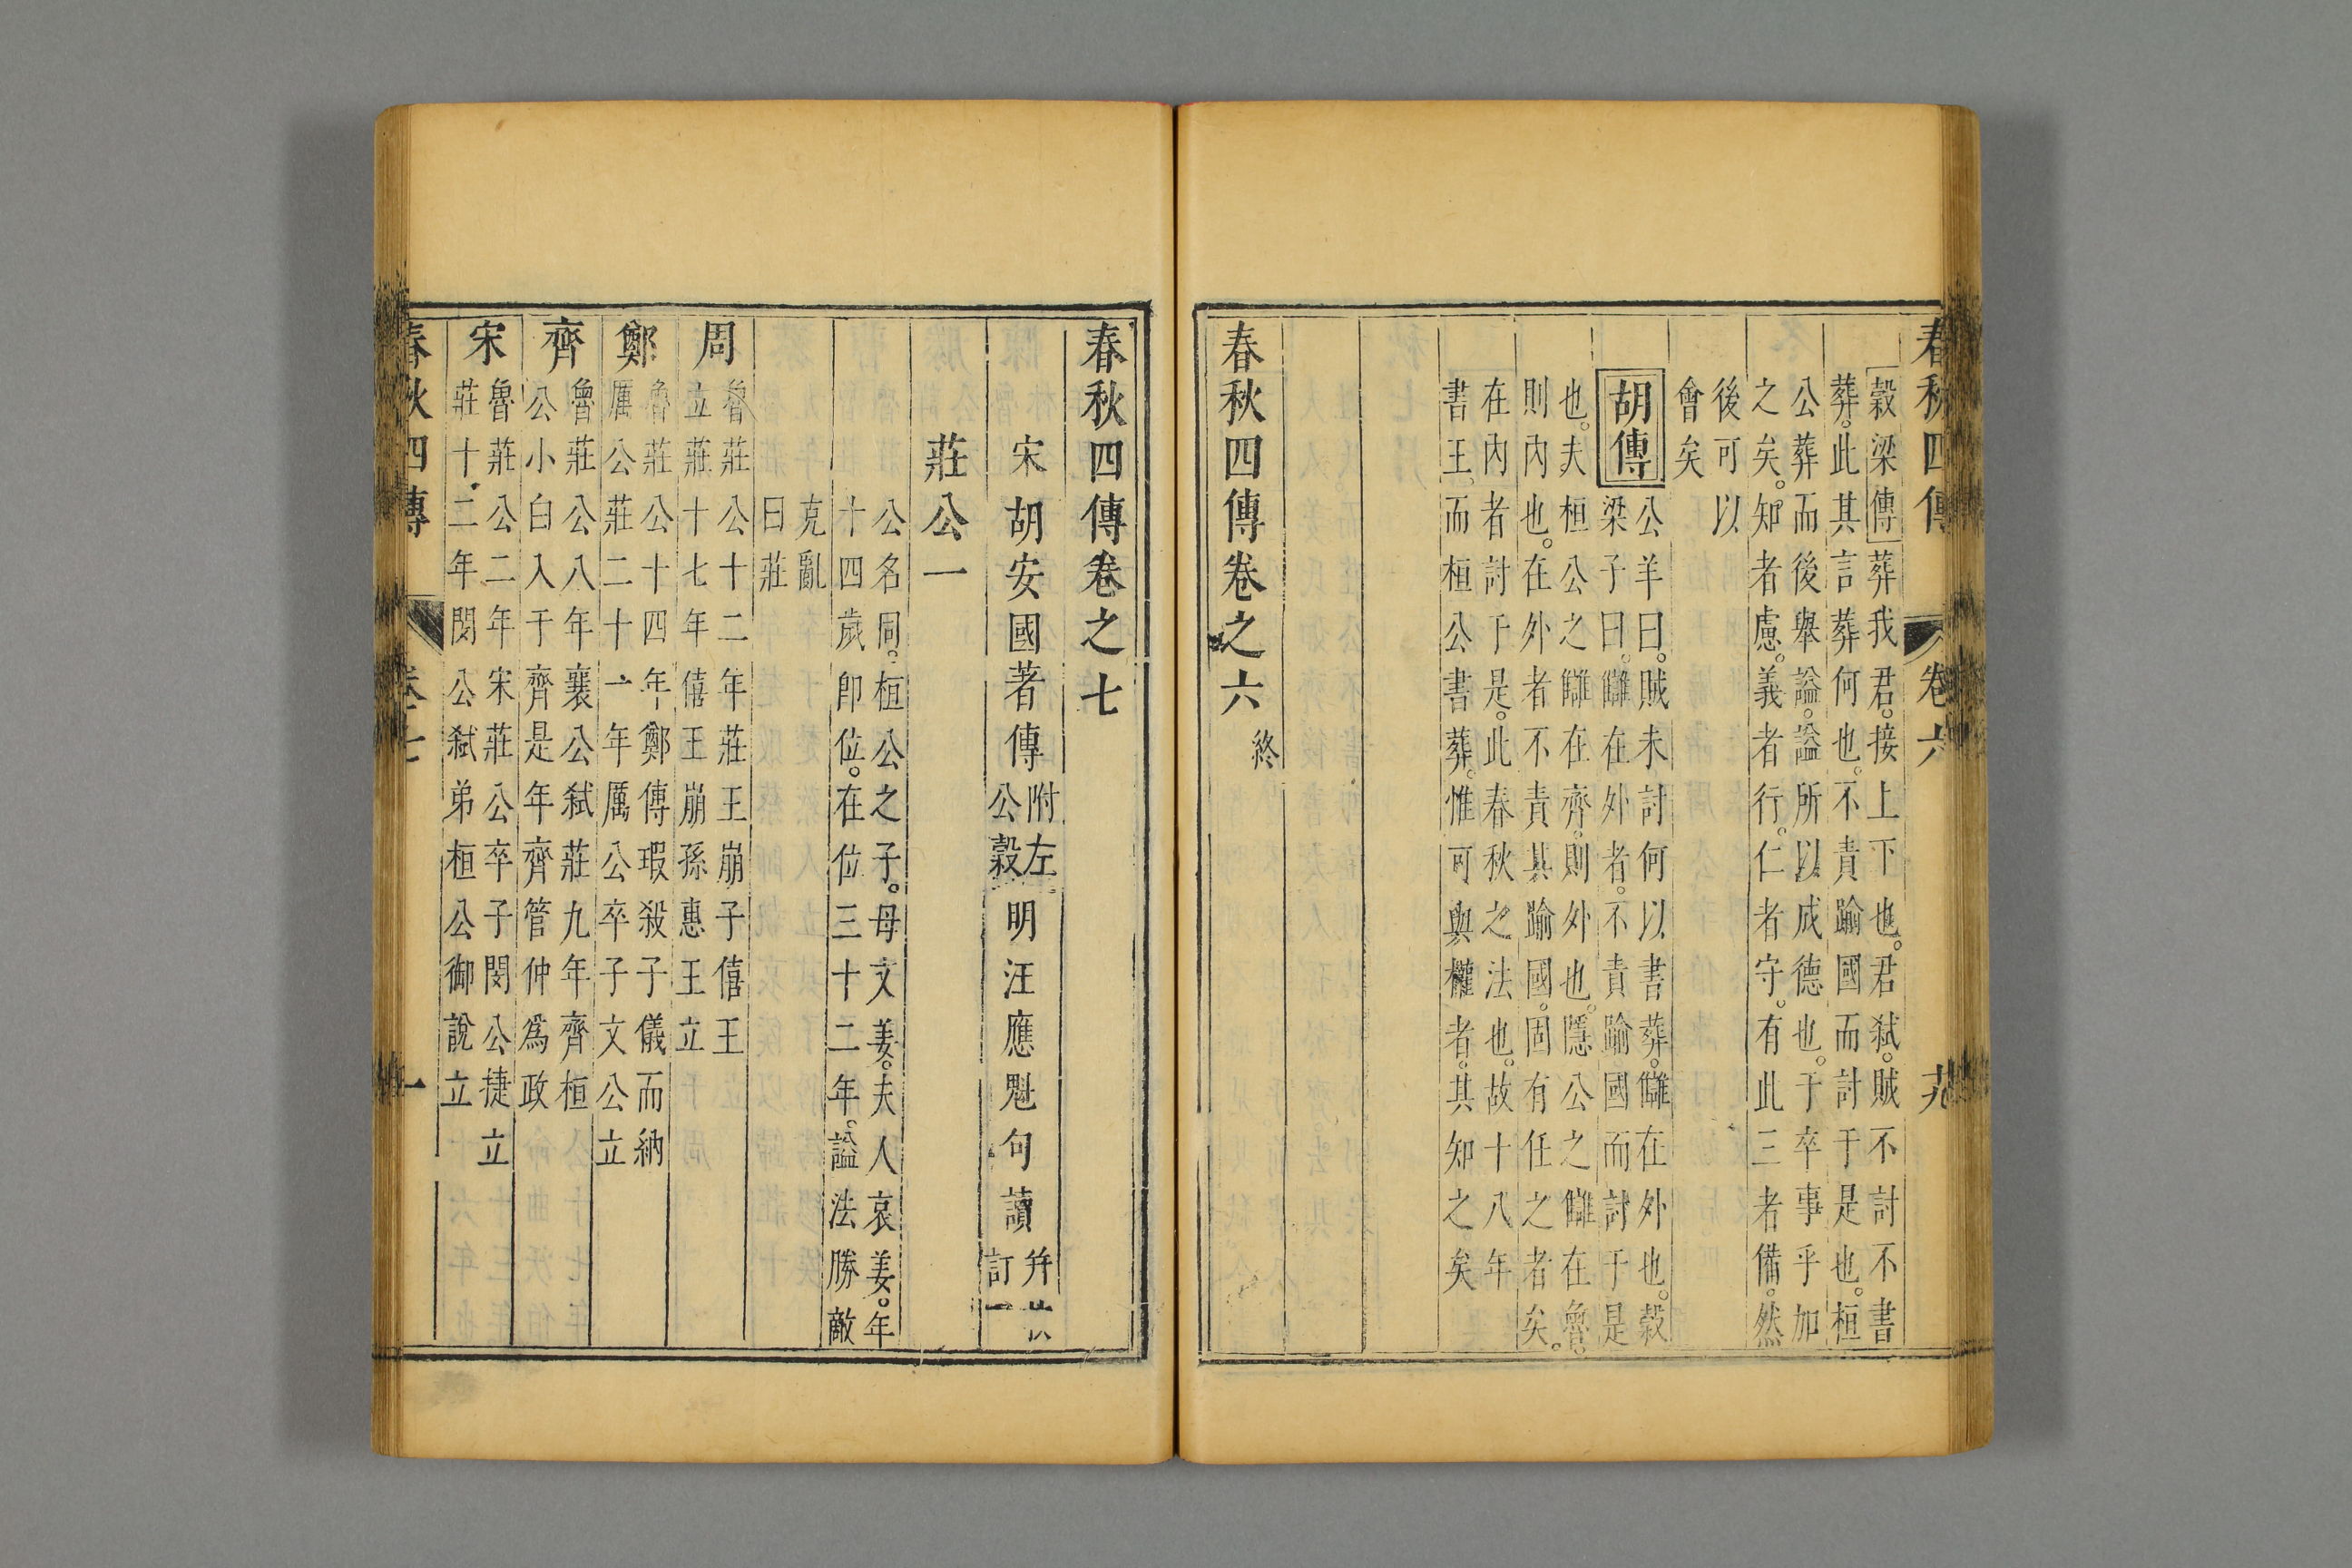 春秋四傳
卷六
穀梁傳葬我君。接上下也。君弑。賊不討不書
葬。此其言葬何也。不責踰國而討于是也。桓
公葬而後舉謚。謚所以成德也。于卒事乎加
之矣。知者慮。義者行。仁者守。有此三者備。然
後可以
會矣
胡傳
公羊曰。賊未討何以書葬。讎在外也。穀
梁子曰。讎在外者。不責踰國而討于是
也。夫桓公之讎在齊。則外也。隱公之讎在魯。
則內也。在外者不責其踰國。固有任之者矣。
在內者討于是。此春秋之法也。故十八年
書王。而桓公書葬。惟可與權者。其知之矣
春秋四傳卷之六終
春秋四傳卷之七
宋胡安國著傳
附左
公穀
明汪應魁句讀
莊公一
公名同。桓公之子。母文姜。夫人哀姜。年
十四歲即位。在位三十二年。謚法勝敵
克亂
曰莊
周
魯莊公十二年莊王崩子僖王
立莊十七年僖王崩孫惠王立
鄭
魯莊公十四年鄭傳瑕殺子儀而納
厲公莊二十一年厲公卒子文公立
齊
魯莊公八年襄公弑莊九年齊桓
公小白入于齊是年齊管仲爲政
宋
魯莊公二年宋莊公卒子閔公捷立
莊十二年閔公弑弟桓公御說立
春秋四傳
卷七
一